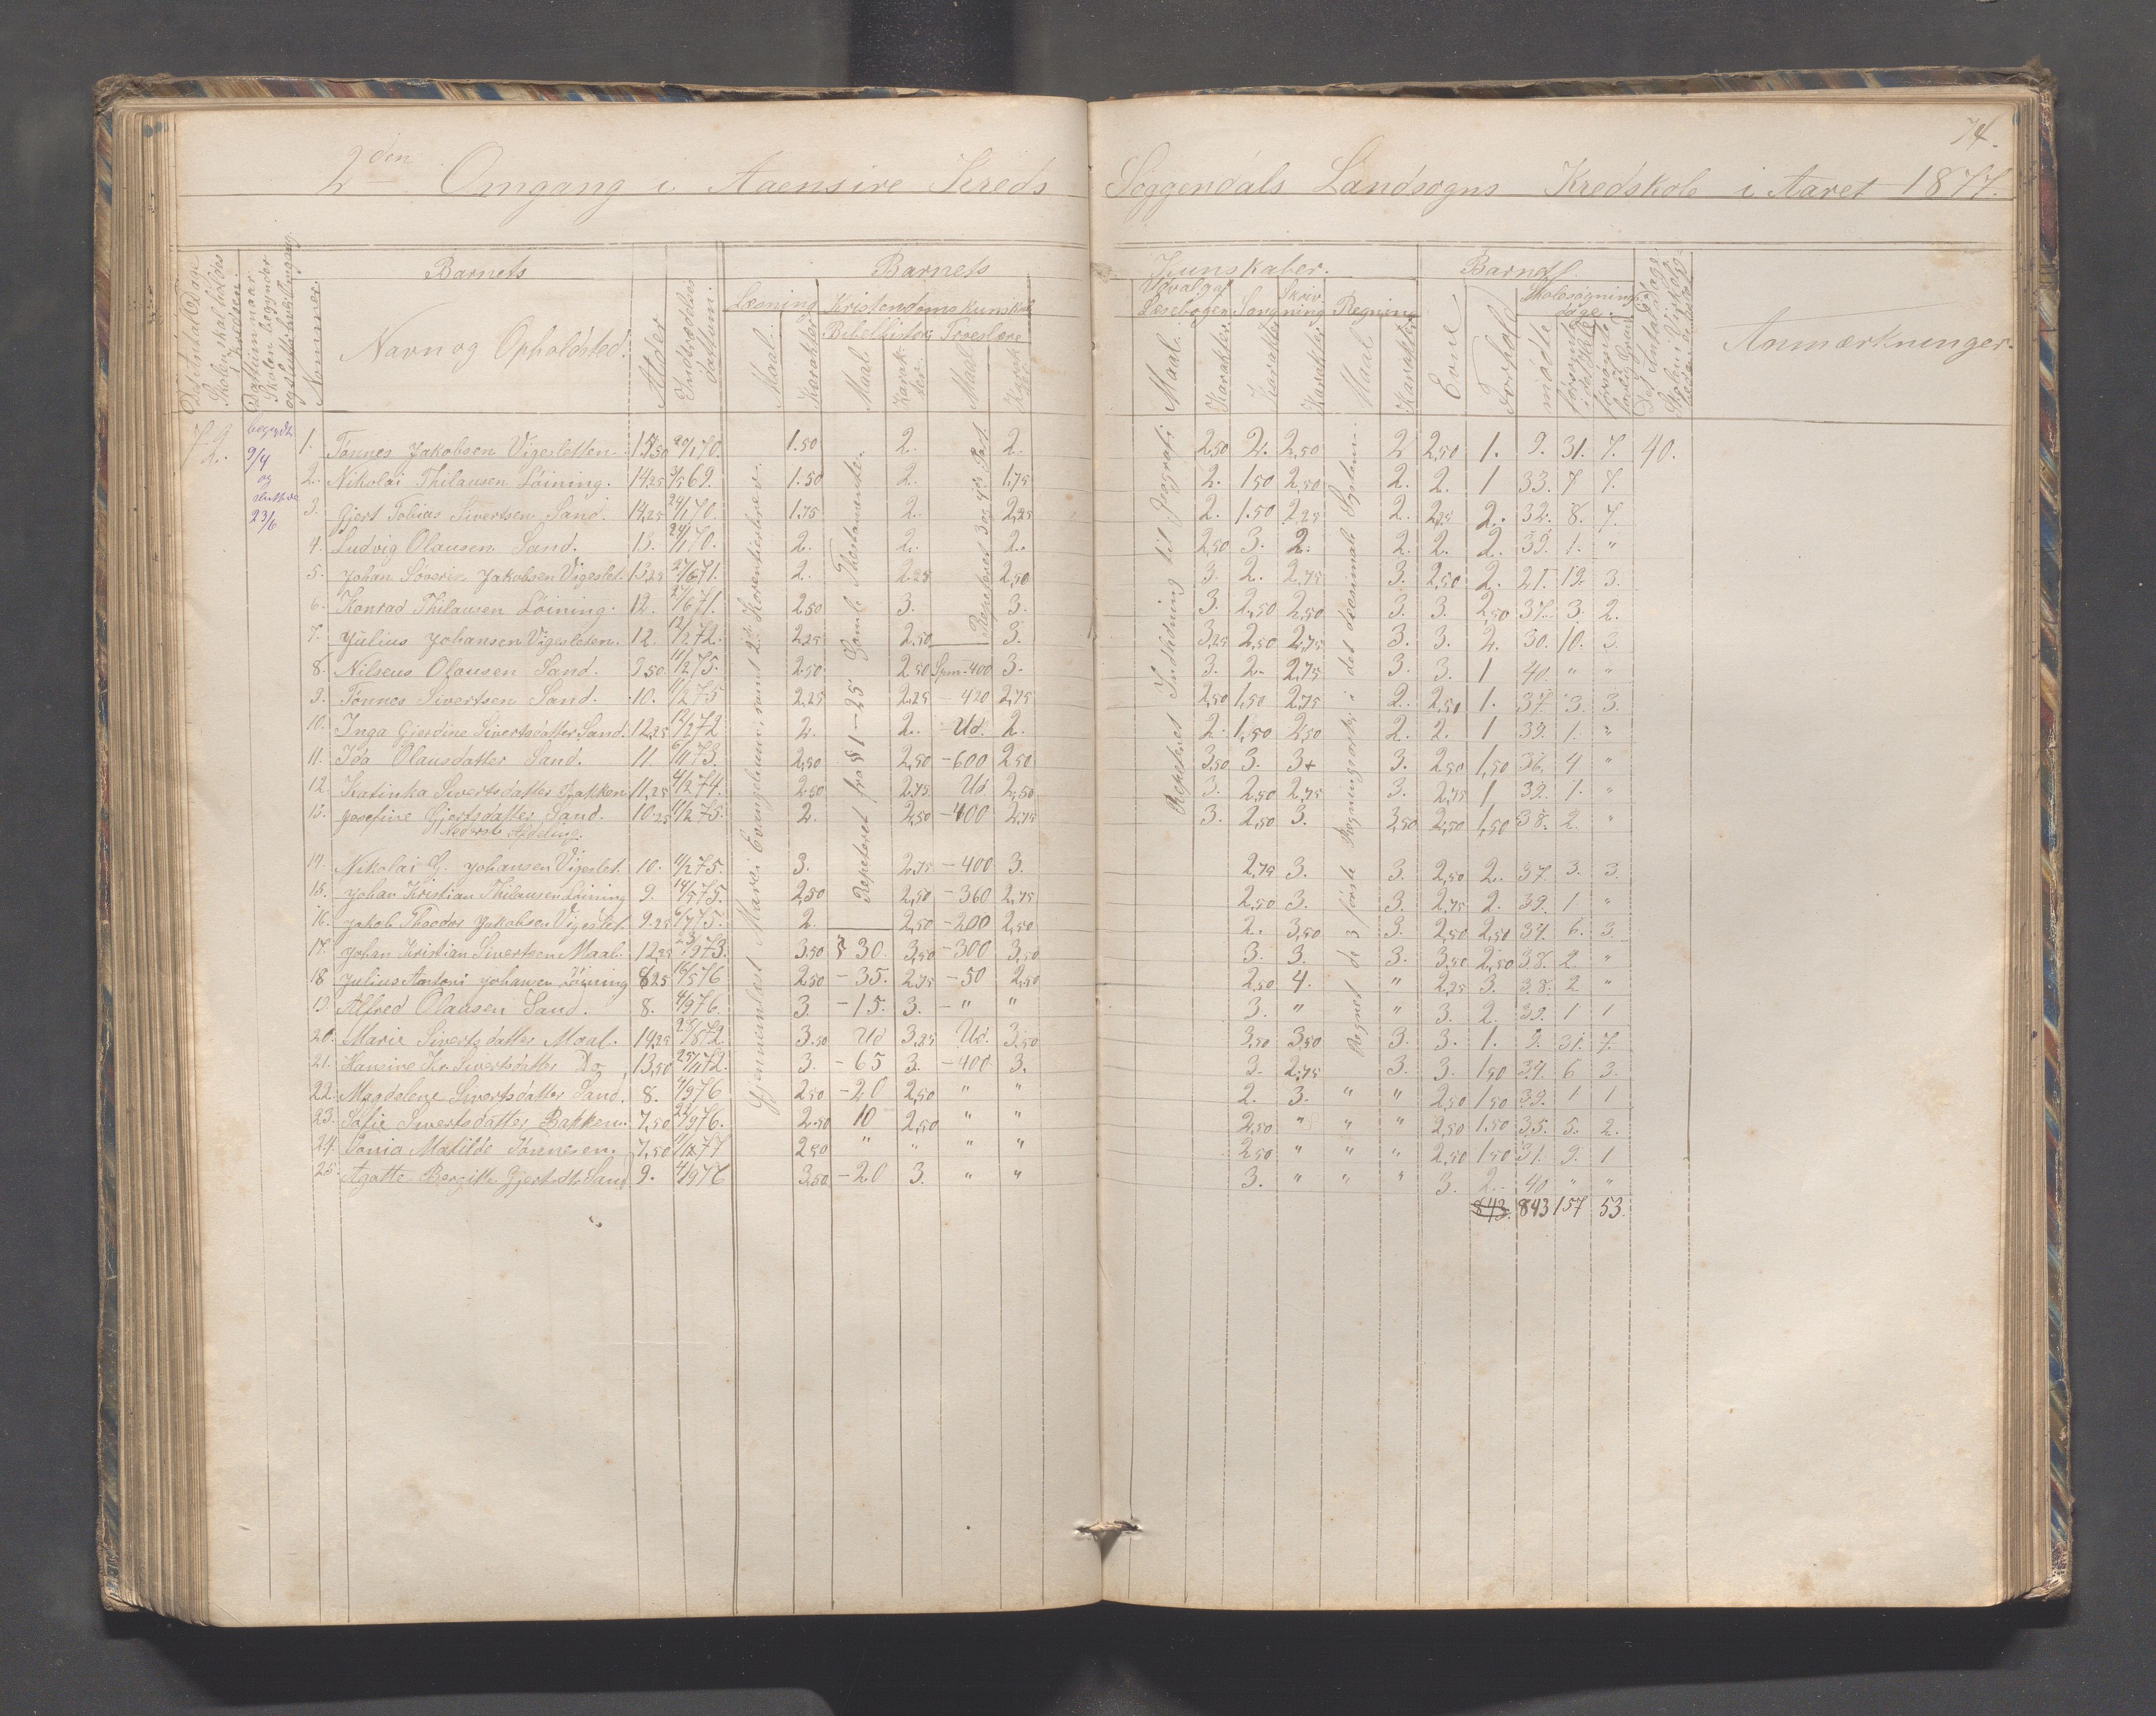 74.
2den Omgang i Aaensire Kreds Soggendals Landsogns Kredskole i Aaret 1877.
Barnets Barnets Kunskaber. Barnets
Nummer. Navn og Opholdsted. Alder Indtrædelses datum. Læsning Kristendomskunskab Udvalg af Læsebogen Sang Skrivning Regning Evne Forhold Skolesøgning dage Anmærkninger.
Bibelhistorie Troeslære
Maal. Karakter Maal. Karakter Maal. Karakter Maal. Karakter Karakter Karakter Maal Karakter mødte
72. begyndt 9/4 og sluttede 23/6
Gjennemlæst Marci Evangelium, samt 2den Korentierbrev.
Repeteret fra § 1-25 Gamle Thestamente.
Repeteret 3 og 4de Part.
Repeteret Indledning til Geografi
Regnet de 3 første Regningsarter i det decimale System.
1. Tønnes Jakobsen Vigesletten. 13,50 20/1 70. 1.50 2. 2. 2,50 2. 2,50 2 2,50 1. 9. 31. 7. 40.
2. Nikolai Thilausen Löining. 14,25 3/5 69. 1.50 2. 1,75 2. 1,50 2,50 2. 2. 1 33. 7 7.
3. Gjert Tobias Sivertsen Sand. 14,25 24/1 70. 1.75 2. 2,25 2. 1.50 2,25 2. 2,25 2. 32. 8. 7.
4. Ludvig Olausen Sand. 13. 24/1 70. 2. 2. 2. 2,50 3. 2. 2. 2. 2. 39. 1. "
5. Johan Severin Jakobsen Vigeslet. 13,25 27/6 71. 2. 2.25 2,50 3. 2. 2,75 3. 2,50 2. 21. 19. 3.
6. Konrad Thilausen Löining. 12. 27/6 71. 2,50 3. 3. 3. 2,50 2,50 3. 3. 2,50 37. 3. 2.
7. Julius Johansen Vigesleten. 12. 12/2 72. 2,25 2,50 3. 3,25 2,50 2,75 3. 3. 2. 30. 10. 3.
8. Nilseus Olausen Sand. 9,50 11/2 75. 2,50 2,50 Spm-400 3. 3. 2. 2,75 3. 3. 1 40. " "
9. Tønnes Sivertsen Sand. 10. 11/2 75 2,25 2,25 - 420 2,75 2,50 1,50 2,75 2. 2,50 1. 37. 3. 3.
10. Inga Gjerdine Sivertsdatter Sand. 12,25 12/2 72 2. 2. - Ud. 2. 2. 1,50 2,50 2. 2. 1 39. 1. "
11. Ida Olausdatter Sand. 11. 6/11 73. 2,50 2,50 -600 2,50 3,50 3. 3+ 3. 2,50 1,50 36. 4 "
12. Katinka Sivertsdatter Bakken 11,25 4/2 74. 2,50 2,75 Ud. 2,50 3. 2,50 2,75 3. 2,75 1 39. 1. "
13. Josefine Gjertsdatter Sand. 10.25 11/2 75. 2. 2,50 -400 2,75 3. 2,50 3. 3,50 2,50 1,50 38. 2. "
Nederste Afdeling.
14. Nikolai G. Johansen Vigeslet. 10. 11/2 75. 3. 2,75 -400 3. 2,75 3. 3. 2,50 2. 37. 3. 3.
15. Johan Kristian Thilausen Löining 9. 14/5 75. 2,50 2,50 -360 2,75 2,50 3. 3. 2,75 2. 39. 1 "
16. Jakob Theodor Jakobsen Vigeslet. 9.25 6/7 75. 2. 2,50 -200 2,50 2. 3,50 3. 2,50 2,50 37. 6. 3
17. Johan Kristian Sivertsen Maal. 12,25 23/9 73. 3,50 § 30. 3,50 -300 3,50 3. 3. 3. 3,50 2,50 38. 2. "
18 Julius Antoni Johansen Löining 8,25 16/5 76 2,50 -35. 2,75 -50 2,50 2,50 4. " 2,25 3. 38. 2 "
19. Alfred Olausen Sand. 8. 4/9 76. 3. -15. 3. - " " 3. " " 3. 2. 39. 1 1
20. Marie Sivertsdatter Maal. 14,25 27/8 72. 3.50 Ud 3,25 Ud. 3,50 3,50 3,50 3. 3. 1. 9. 31. 7.
21. Hansine Kr. Sivertsdatter Do , 13,50 25/11 72. 3. -65 3. -400. 3. 3. 2,75 3. 3. 1,50 34. 6 3.
22. Magdelene Sivertsdatter Sand. 8. 4/9 76 2,50 -20 2,50 " " 2. 3. " " 2,50 1,50 39. 1 1
23. Sofie Sivertsdatter Bakken. 7,50 22/9 76. 2.50 10 2,50 " " 2,50 " " " 2,50 1,50 35. 5. 2.
24. Tonia Matilde Tönnesen. 7,50 2,50 " " " " 2,50 " " " 2,50 1,50 31. 9. 1
25. Agatte Bergitte Gjertsdtr Sand 9. 4/9 76 3,50 -20 3. " " 3. " " " 3. 2. 40 " "
843. 843 157 53.